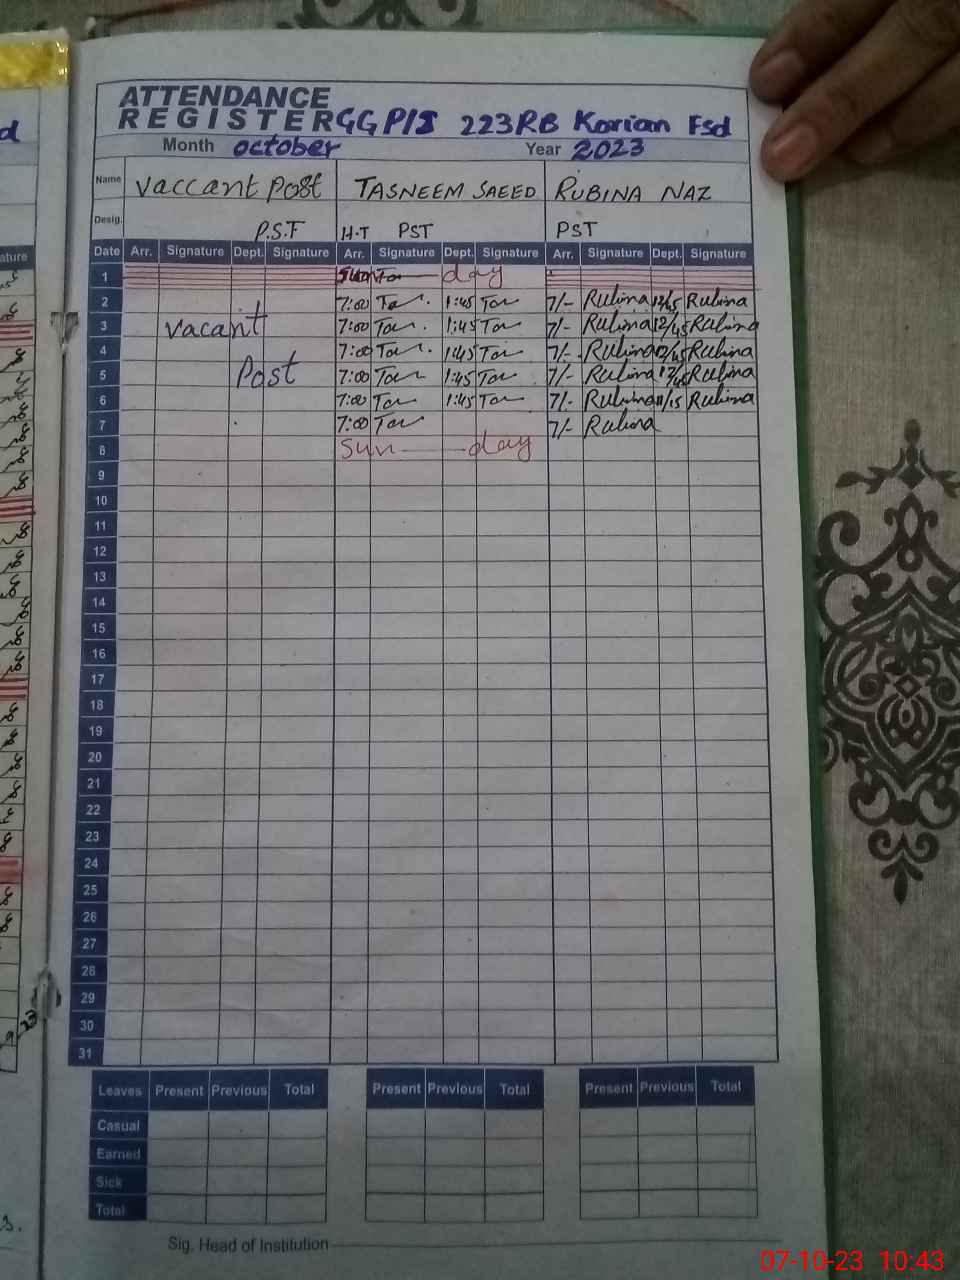 ATTENDANCE
REGISTER GGP/S 223RB Karian Fsd
Month October Year 2023
Name Vaccant Post TASNEEM SAEED RUBINA NAZ
Desig. P.S.T H.T PST PST
Date Arr. Signature Dept. Signature Arr. Signature Dept. Signature Arr. Signature Dept. Signature
1 Sun day
2 7:00 Tas 1:45 Tas 7/- Rubina 12/45 Rubina
3 vacant 7:00 Tas 1:45 Tas 7/- Rubina 12/45 Rubina
4 7:00 Tas 1:45 Tas 7/- Rubina 12/45 Rubina
5 Post 7:00 Tas 1:45 Tas 7/- Rubina 12/45 Rubina
6 7:00 Tas 1:45 Tas 7/- Rubina 11/15 Rubina
7 7:00 Tas 7/- Rubina
8 Sun day
9
10
11
12
13
14
15
16
17
18
19
20
21
22
23
24
25
26
27
28
29
30
31
Leaves Present Previous Total Present Previous Total Present Previous Total
Casual
Earned
Sick
Total
Sig. Head of Institution
07-10-23 10:43